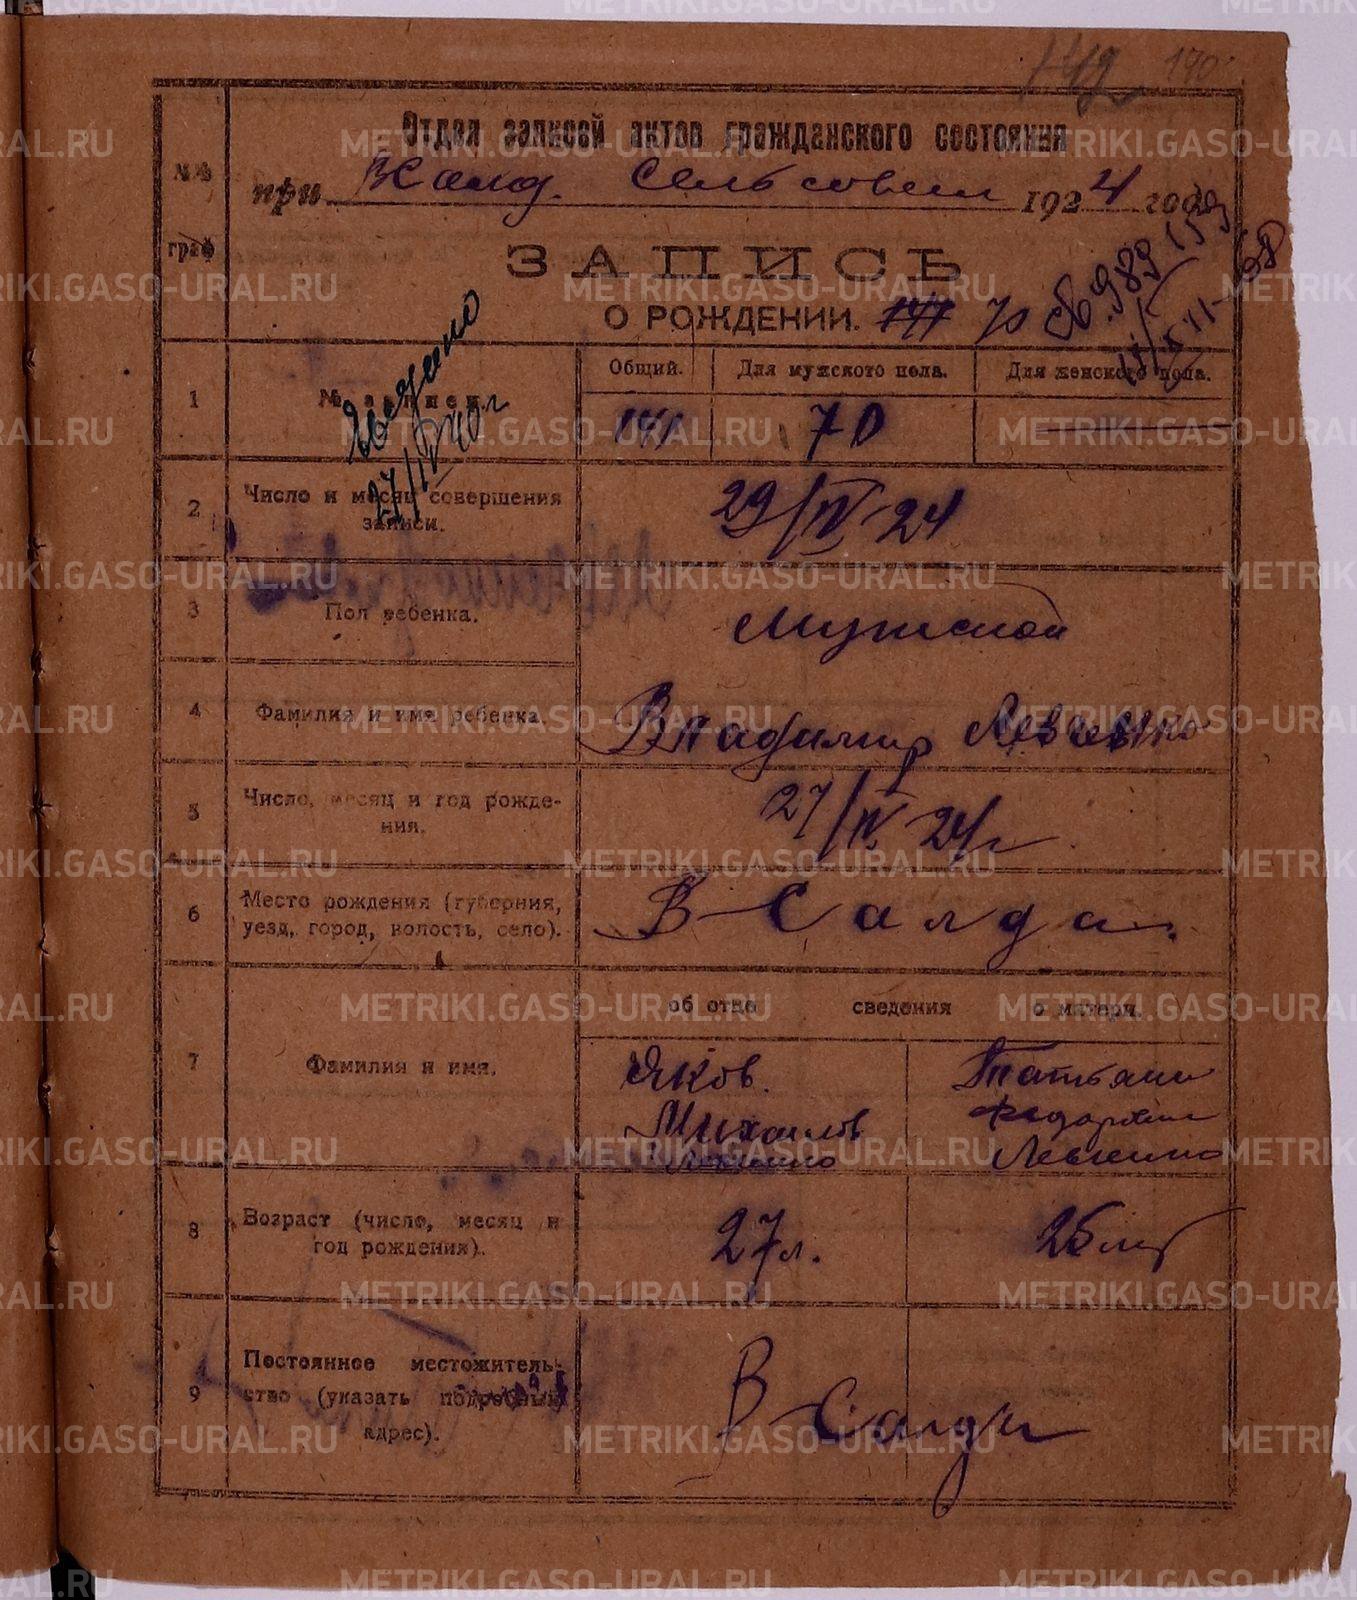 140
Отдел записей актов гражданского состояния
при ВСалд. Сельсовет 1924 года
№№ граф
ЗАПИСЬ
О РОЖДЕНИИ. 141 70
Св. 989
1 № записи Общий. Для мужского пола. Для женского пола.
141 70
Выдано
27/IV 40 г
2 Число и месяц совершения записи. 29/IV-24
3 Пол ребенка. Мужской
4 Фамилия и имя ребенка. Владимир
5 Число, месяц и год рождения. 27/IV 24 г
6 Место рождения (губерния, уезд, город, волость, село). В-Салда.
об отце сведения о матери.
7 Фамилия и имя.
Яков Татьяна
Михаилов Федоровна
8 Возраст (число, месяц и год рождения). 27 л. 25 лет
9 Постоянное местожительство (указать подробный адрес). В-Салда
METRIKI.GASO-URAL.RU